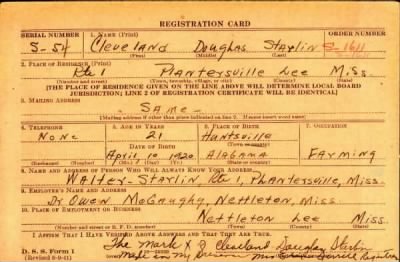 REGISTRATION CARD
SERIAL NUMBER 1. NAME (Print) ORDER NUMBER
S-54 Cleveland Douglas Starlin S-1611
(First) (Middle) (Last)
2. PLACE OF RESIDENCE (Print)
Rte 1 Plantersville Lee Miss.
(Number and street) (Town, township, village, or city) (County) (State)
[THE PLACE OF RESIDENCE GIVEN ON THE LINE ABOVE WILL DETERMINE LOCAL BOARD
JURISDICTION; LINE 2 OF REGISTRATION CERTIFICATE WILL BE IDENTICAL]
3. MAILING ADDRESS
Same
[Mailing address if other than place indicated on line 2. If same insert word same]
4. TELEPHONE 5. AGE IN YEARS 6. PLACE OF BIRTH 7. OCCUPATION
None 21 Huntsville
DATE OF BIRTH (Town or county)
April 10 1920 Alabama Farming
(Exchange) (Number) (Mo.) (Day) (Yr.) (State or country)
8. NAME AND ADDRESS OF PERSON WHO WILL ALWAYS KNOW YOUR ADDRESS
Walter Starlin, Rte 1, Plantersville, Miss.
9. EMPLOYER'S NAME AND ADDRESS
Dr Owen McGaughy, Nettleton, Miss.
10. PLACE OF EMPLOYMENT OR BUSINESS
Nettleton Lee Miss.
(Number and street or R. F. D. number) (Town) (County) (State)
I AFFIRM THAT I HAVE VERIFIED ABOVE ANSWERS AND THAT THEY ARE TRUE.
The Mark X of Cleveland Douglas Starlin
D. S. S. Form 1 made in my